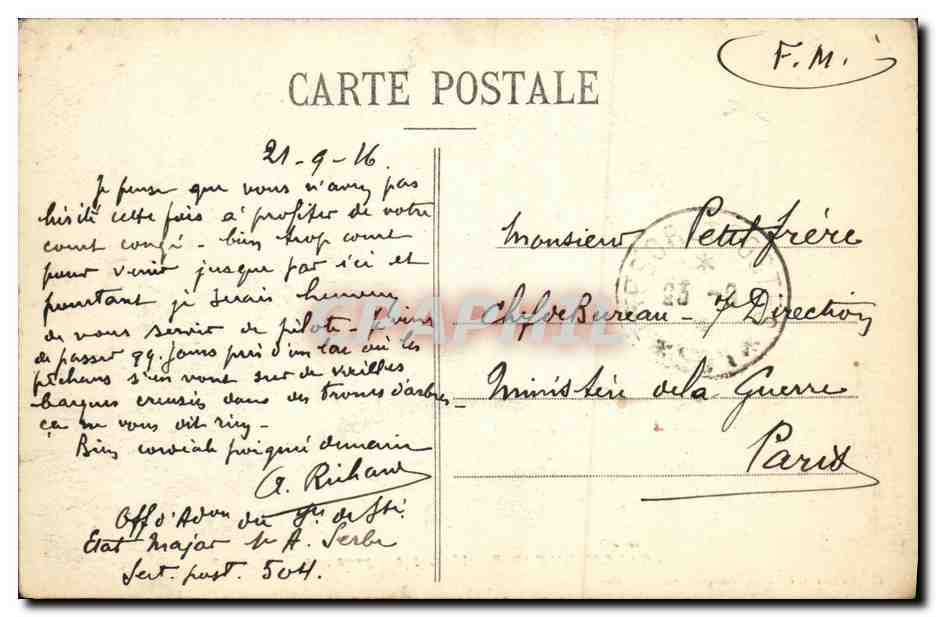 F.M.
CARTE POSTALE
21-9-16
Je pense que vous n'avez pas
hésité cette fois à profiter de votre
court congé - bien trop court
pour venir jusque par ici et
pourtant je serais heureux
de vous servir de pilote - Je viens
de passer 99. jours près d'un lac où les
pêcheurs s'en vont sur de vieilles
barques creusées dans des troncs d'arbres -
ça ne vous dit rien -
Bien cordiale poignée de main
A. Richard
Off d'Adon du
Etat Major A. Serbe
Sect. post. 504.
Monsieur Petit frère
Chef de Bureau - 7e Direction
Ministère de la Guerre
Paris
TRESOR POSTES
23 - 9